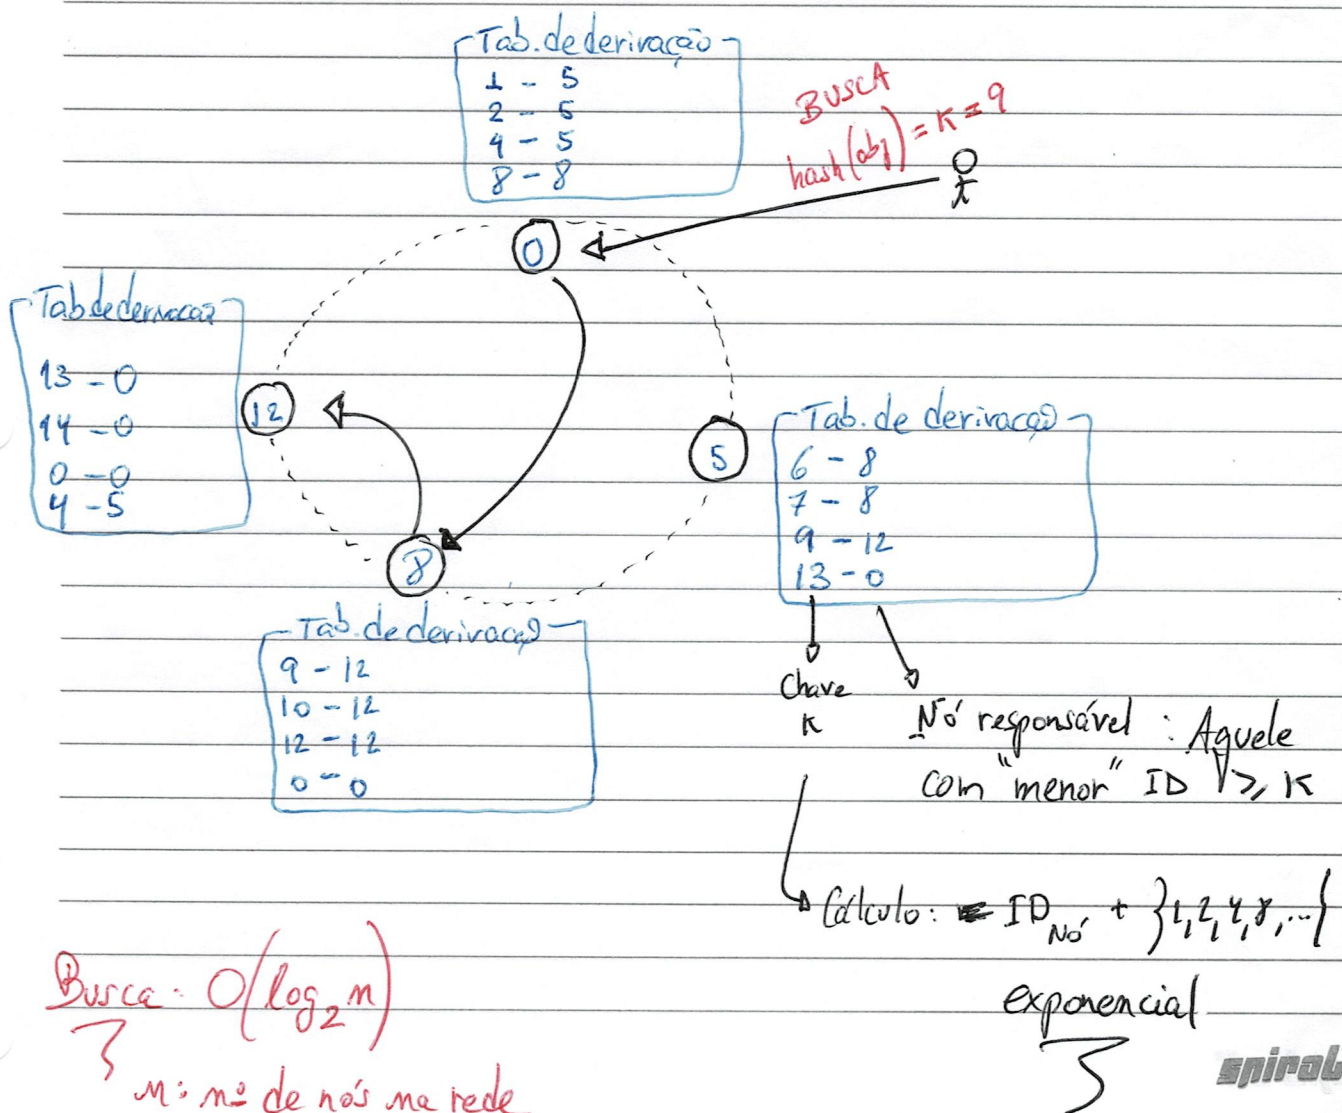 Tab. de derivação
1 - 5
2 - 5
4 - 5
8 - 8
BUSCA
hash(obj) = K = 9
0
Tab de derivacao
13 - 0
14 - 0
0 - 0
4 - 5
12
5
Tab. de derivação
6 - 8
7 - 8
9 - 12
13 - 0
8
Tab. de derivação
9 - 12
10 - 12
12 - 12
0 - 0
Chave
K
Nó responsável : Aquele
com "menor" ID ≥ K
Cálculo: ID Nó + {1, 2, 4, 8, ...}
exponencial
Busca: O(log₂ n)
n: nº de nós na rede
spiral